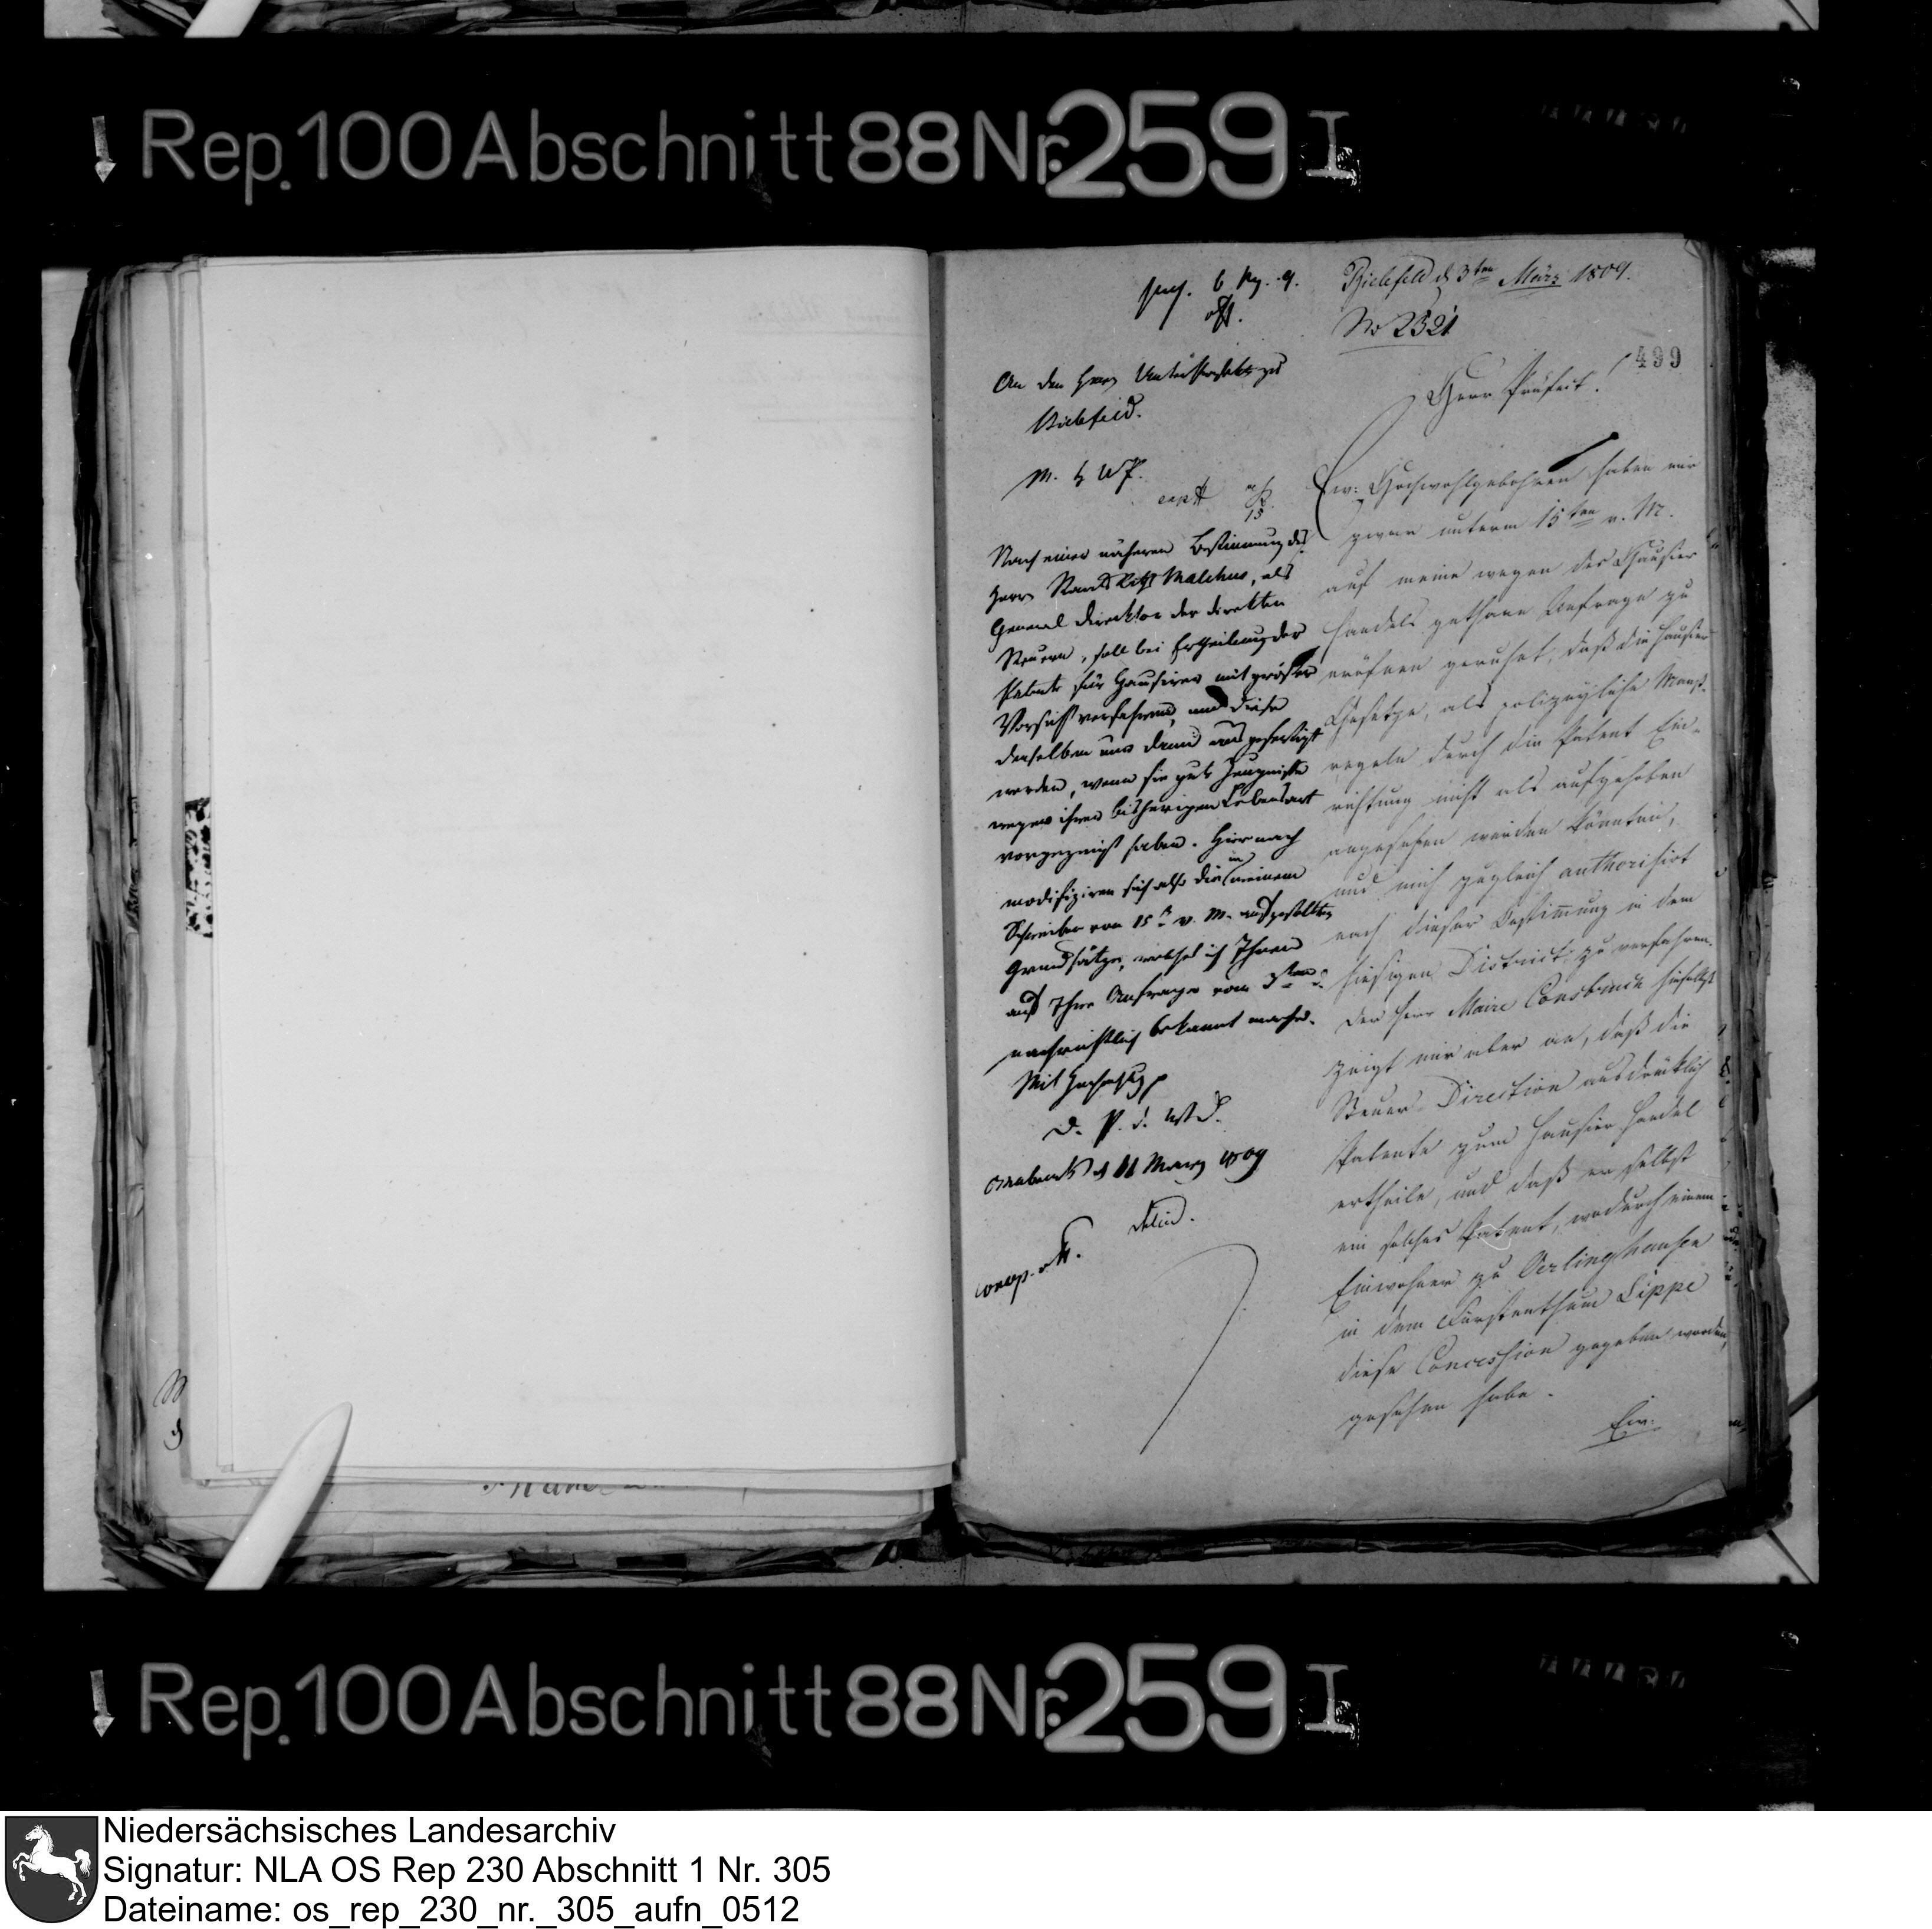 Rep. 100 Abschnitt 88 Nr. 259 I
Bielefeld d 3ten März 1809.
No 2321
499
Herr Präfect!
Ew: Hochwohlgebohren haben mir
zwar unterm 15ten v. M.
auf meine wegen des Hausier
handels gethane Anfrage zu
eröfnen geruhet, daß die Hausier
Gesetze, als polizeyliche Maaß-
regeln durch die Patent Ein-
richtung nicht als aufgehoben
angesehen werden könnten,
und mich zugleich authorisirt
nach dieser Bestimmung in dem
hiesigen District zu verfahren.
Der Herr Maire Consbruch hieselbst
zeigt mir aber an, daß die
Steuer-Direction ausdrücklich
Patente zum Hausier Handel
ertheile, und daß er selbst
ein solches Patent, wodurch einem
Einwohner zu Oerlinghausen
in dem Fürstenthum Lippe
diese Concession gegeben worden,
gesehen habe.
Ew:
An den Herrn Unterpräfekt zu
Bielefeld.
Nach einer näheren Bestimmung des
Herrn Malchus, als
General Direktor der direkten
Steuern, soll bei Ertheilung der
Patente für Hausirer mit größter
Vorsicht verfahren, und diese
denselben nur dann ausgefertigt
werden, wenn sie gute Zeugnisse
wegen ihrer bisherigen Lebensart
vorgezeigt haben. Hiernach
modifiziren sich also die in meinem
Schreiben vom 15t v. M. aufgestellten
Grundsätze, welches ich Ihnen
auf Ihre Anfrage vom 3ten d.
nachrichtlich bekannt mache.
Mit Hochachtg
D. P. d. W D.
Osnabrück d 11 März 1809
Rep. 100 Abschnitt 88 Nr. 259 I
Niedersächsisches Landesarchiv
Signatur: NLA OS Rep 230 Abschnitt 1 Nr. 305
Dateiname: os_rep_230_nr._305_aufn_0512